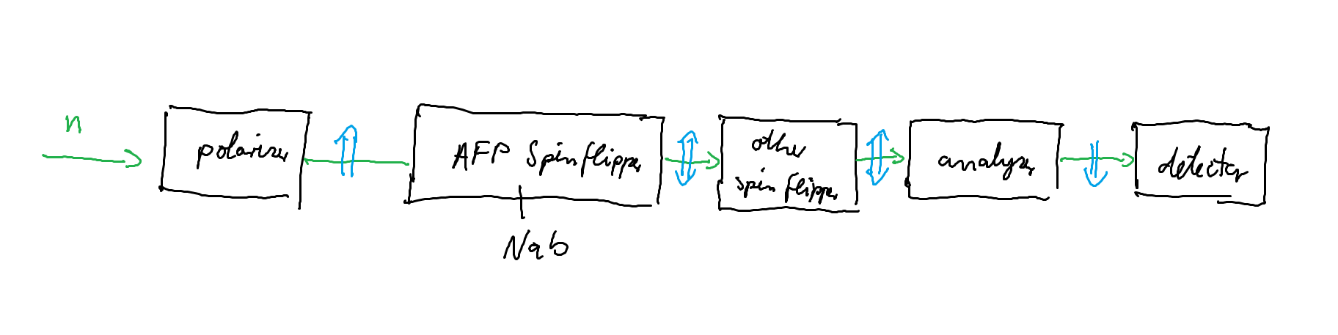 n
polarizer
AFP Spinflipper
other
spin flipper
analyzer
detector
Nab